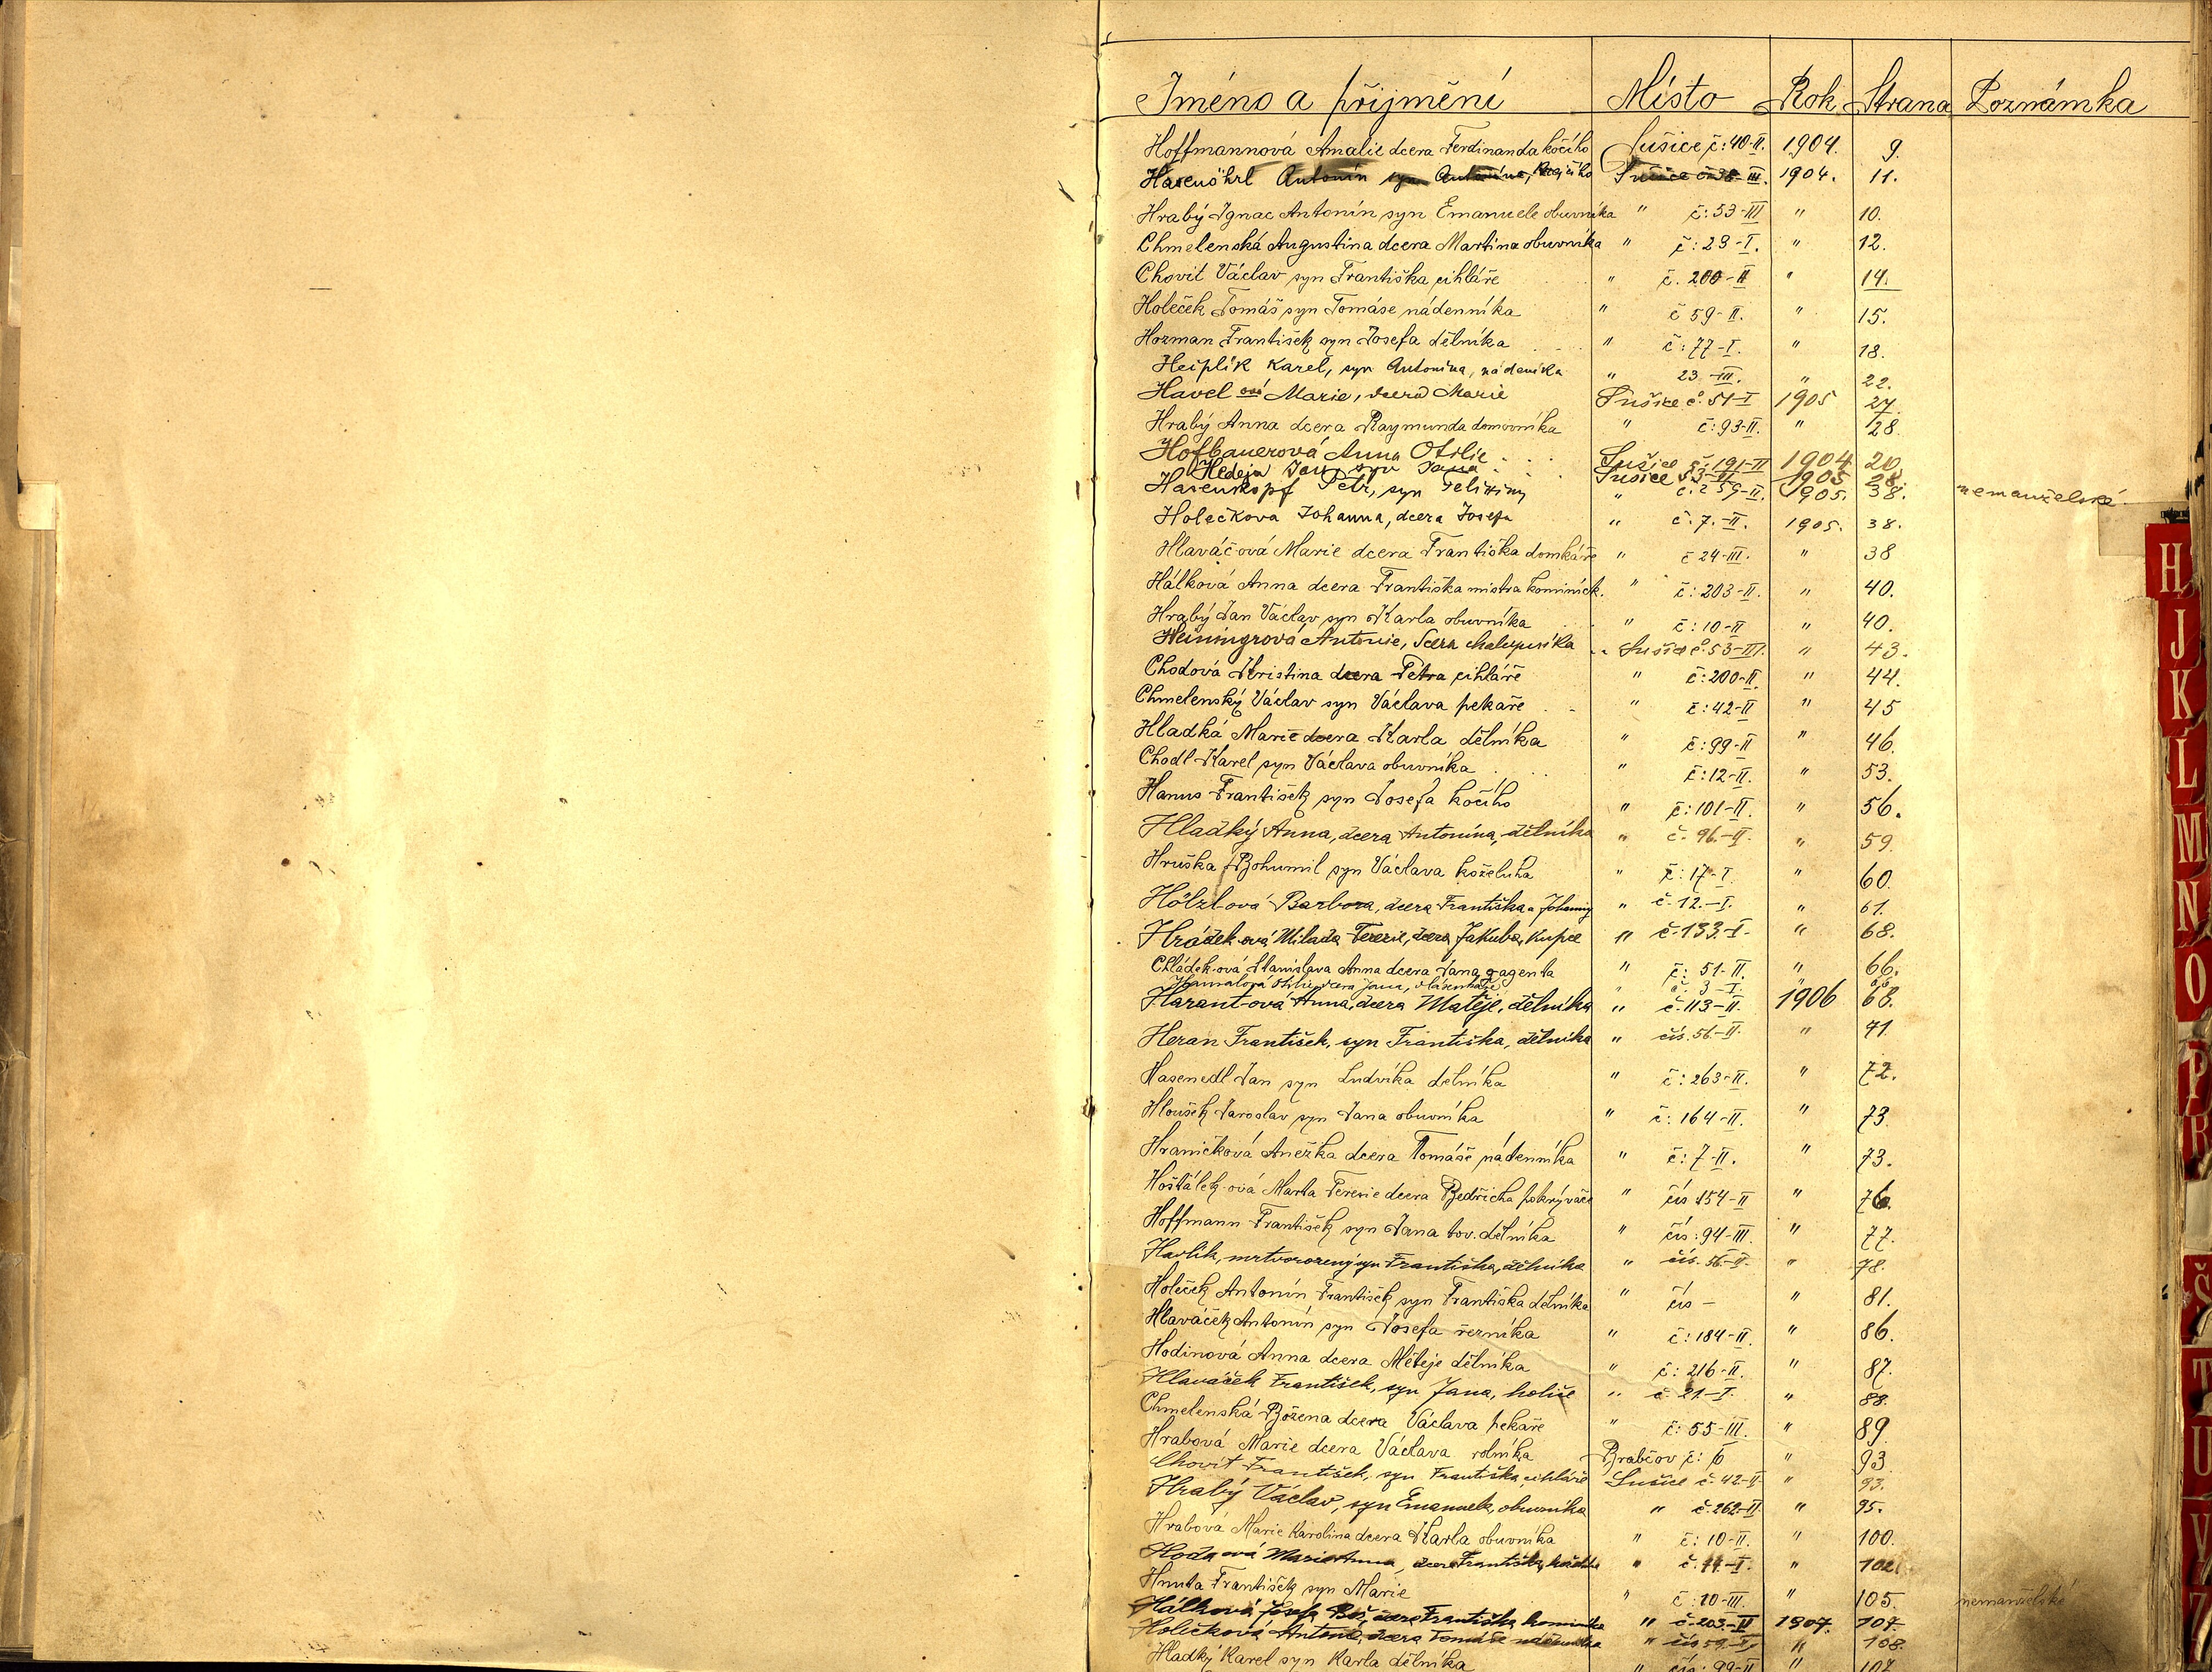 Jméno a příjmění Místo Rok Strana Poznámka
Hoffmannová Amalie dcera Ferdinanda kočího Sušice č: 40-II. 1904. 9.
Hasenöhrl Antonín syn Antonína, Sušice č. 38-III. 1904. 11.
Hrabý Ignac Antonín syn Emanuele obuvníka " č: 53-III " 10.
Chmelenská Augustina dcera Martina obuvníka " č: 29-I. " 12.
Chovit Václav syn Františka cihláře " č. 200-II " 14.
Holeček Tomáš syn Tomáse nádenníka " č 59-II. " 15.
Hozman František syn Josefa dělníka " č: 77-I. " 18.
Hejplík Karel, syn Antonína, nádeníka " 23-III. " 22.
Havel ová Marie, dcera Marie Sušice č. 51-I 1905 27.
Hrabý Anna dcera Raymunda domovníka " č: 93-II. " 28.
Hofbauerová Anna Otilie Sušice č. 191-II 1904 20.
Hedeja Jan syn Jana Sušice 1905 28.
Hasenkopf Petr, syn " č. 259-II. 1905. 38. nemanželské
Holečkova Johanna, dcera Josefa " č. 7.-II. 1905. 38.
Hlaváčová Marie dcera Františka domkáře " č 24-III. " 38
Hálková Anna dcera Františka mistra kominick. " č: 203-II. " 40.
Hrabý Jan Václav syn Karla obuvníka " č: 10-II " 40.
Heiningrová Antonie, dcera chalupníka " Sušice č. 53-III. " 43.
Chodová Kristina dcera Petra cihláře " č: 200-II. " 44.
Chmelenský Václav syn Václava pekaře " č: 42-II " 45
Hladká Marie dcera Karla dělníka " č: 99-II " 46.
Chodl Karel syn Václava obuvníka " č: 12-II. " 53.
Hanus František syn Josefa kočího " č: 101-II. " 56.
Hladký Anna, dcera Antonína, dělníka " č. 96.-II. " 59.
Hruška Bohumil syn Václava koželuha " č: 17-I. " 60.
Hölzlová Barbora, dcera Františka a Johanny " č. 12.-I. " 61.
Hrádek ová Milada Terezie, dcera Jakuba, kupce " č. 133-I. " 68.
Chládek-ová Stanislava Anna dcera Jana agenta " č: 51-II. " 66.
Otilie dcera Jana, " č. 3-I. " 66
Harant-ová Anna, dcera Matěje, dělníka " č. 113-II. 1906 68.
Heran František, syn Františka, dělníka " čís. 56.-II. " 71.
Hasenedl Jan syn Ludvíka dělníka " č: 263-II. " 72.
Hloušek Jaroslav syn Jana obuvníka " č: 164-II. " 73.
Hraničková Anežka dcera Tomáše nádenníka " č: 7-II. " 73.
Hoštálek-ová Marta Terezie dcera Bedřicha pokrývače " čís 154-II " 76.
Hoffmann František syn Jana tov. dělníka " čís: 94-III. " 77.
Havlík, mrtvorozený syn Františka, dělníka " čís. 56.-II. " 78.
Holeček Antonín František syn Františka dělníka " čís - " 81.
Hlaváček Antonín syn Josefa řezníka " č: 184-II. " 86.
Hodinová Anna dcera Mětěje dělníka " č: 216-II. " 87.
Hlaváček František, syn Jana, holiče " č. 21.-I. " 88.
Chmelenská Božena dcera Václava pekaře " č: 55-III. " 89
Hrabová Marie dcera Václava rolníka Brabčov č: 6 " 93
Chovit František, syn Františka, cihláře Sušice č. 42-II. " 93.
Hrabý Václav, syn Emanuele, obuvníka " č. 262-II " 95.
Hrabová Marie Karolina dcera Karla obuvníka " č: 10-II. " 100.
Marie Anna, dcera Františka, " č. 11-I. " 102.
Hnuta František syn Marie " č. 10-III. " 105. nemanželské
Hálková Josefa Bož., dcera Františka kominíka " č. 203.-II 1907. 107.
Holečková Antonie, dcera Tomáše nádenníka " čís. 59.-II " 108.
Hladký Karel syn Karla dělníka " čís: 99-II " 107
H
J
K
L
M
N
O
P
R
Š
T
U
V
Z